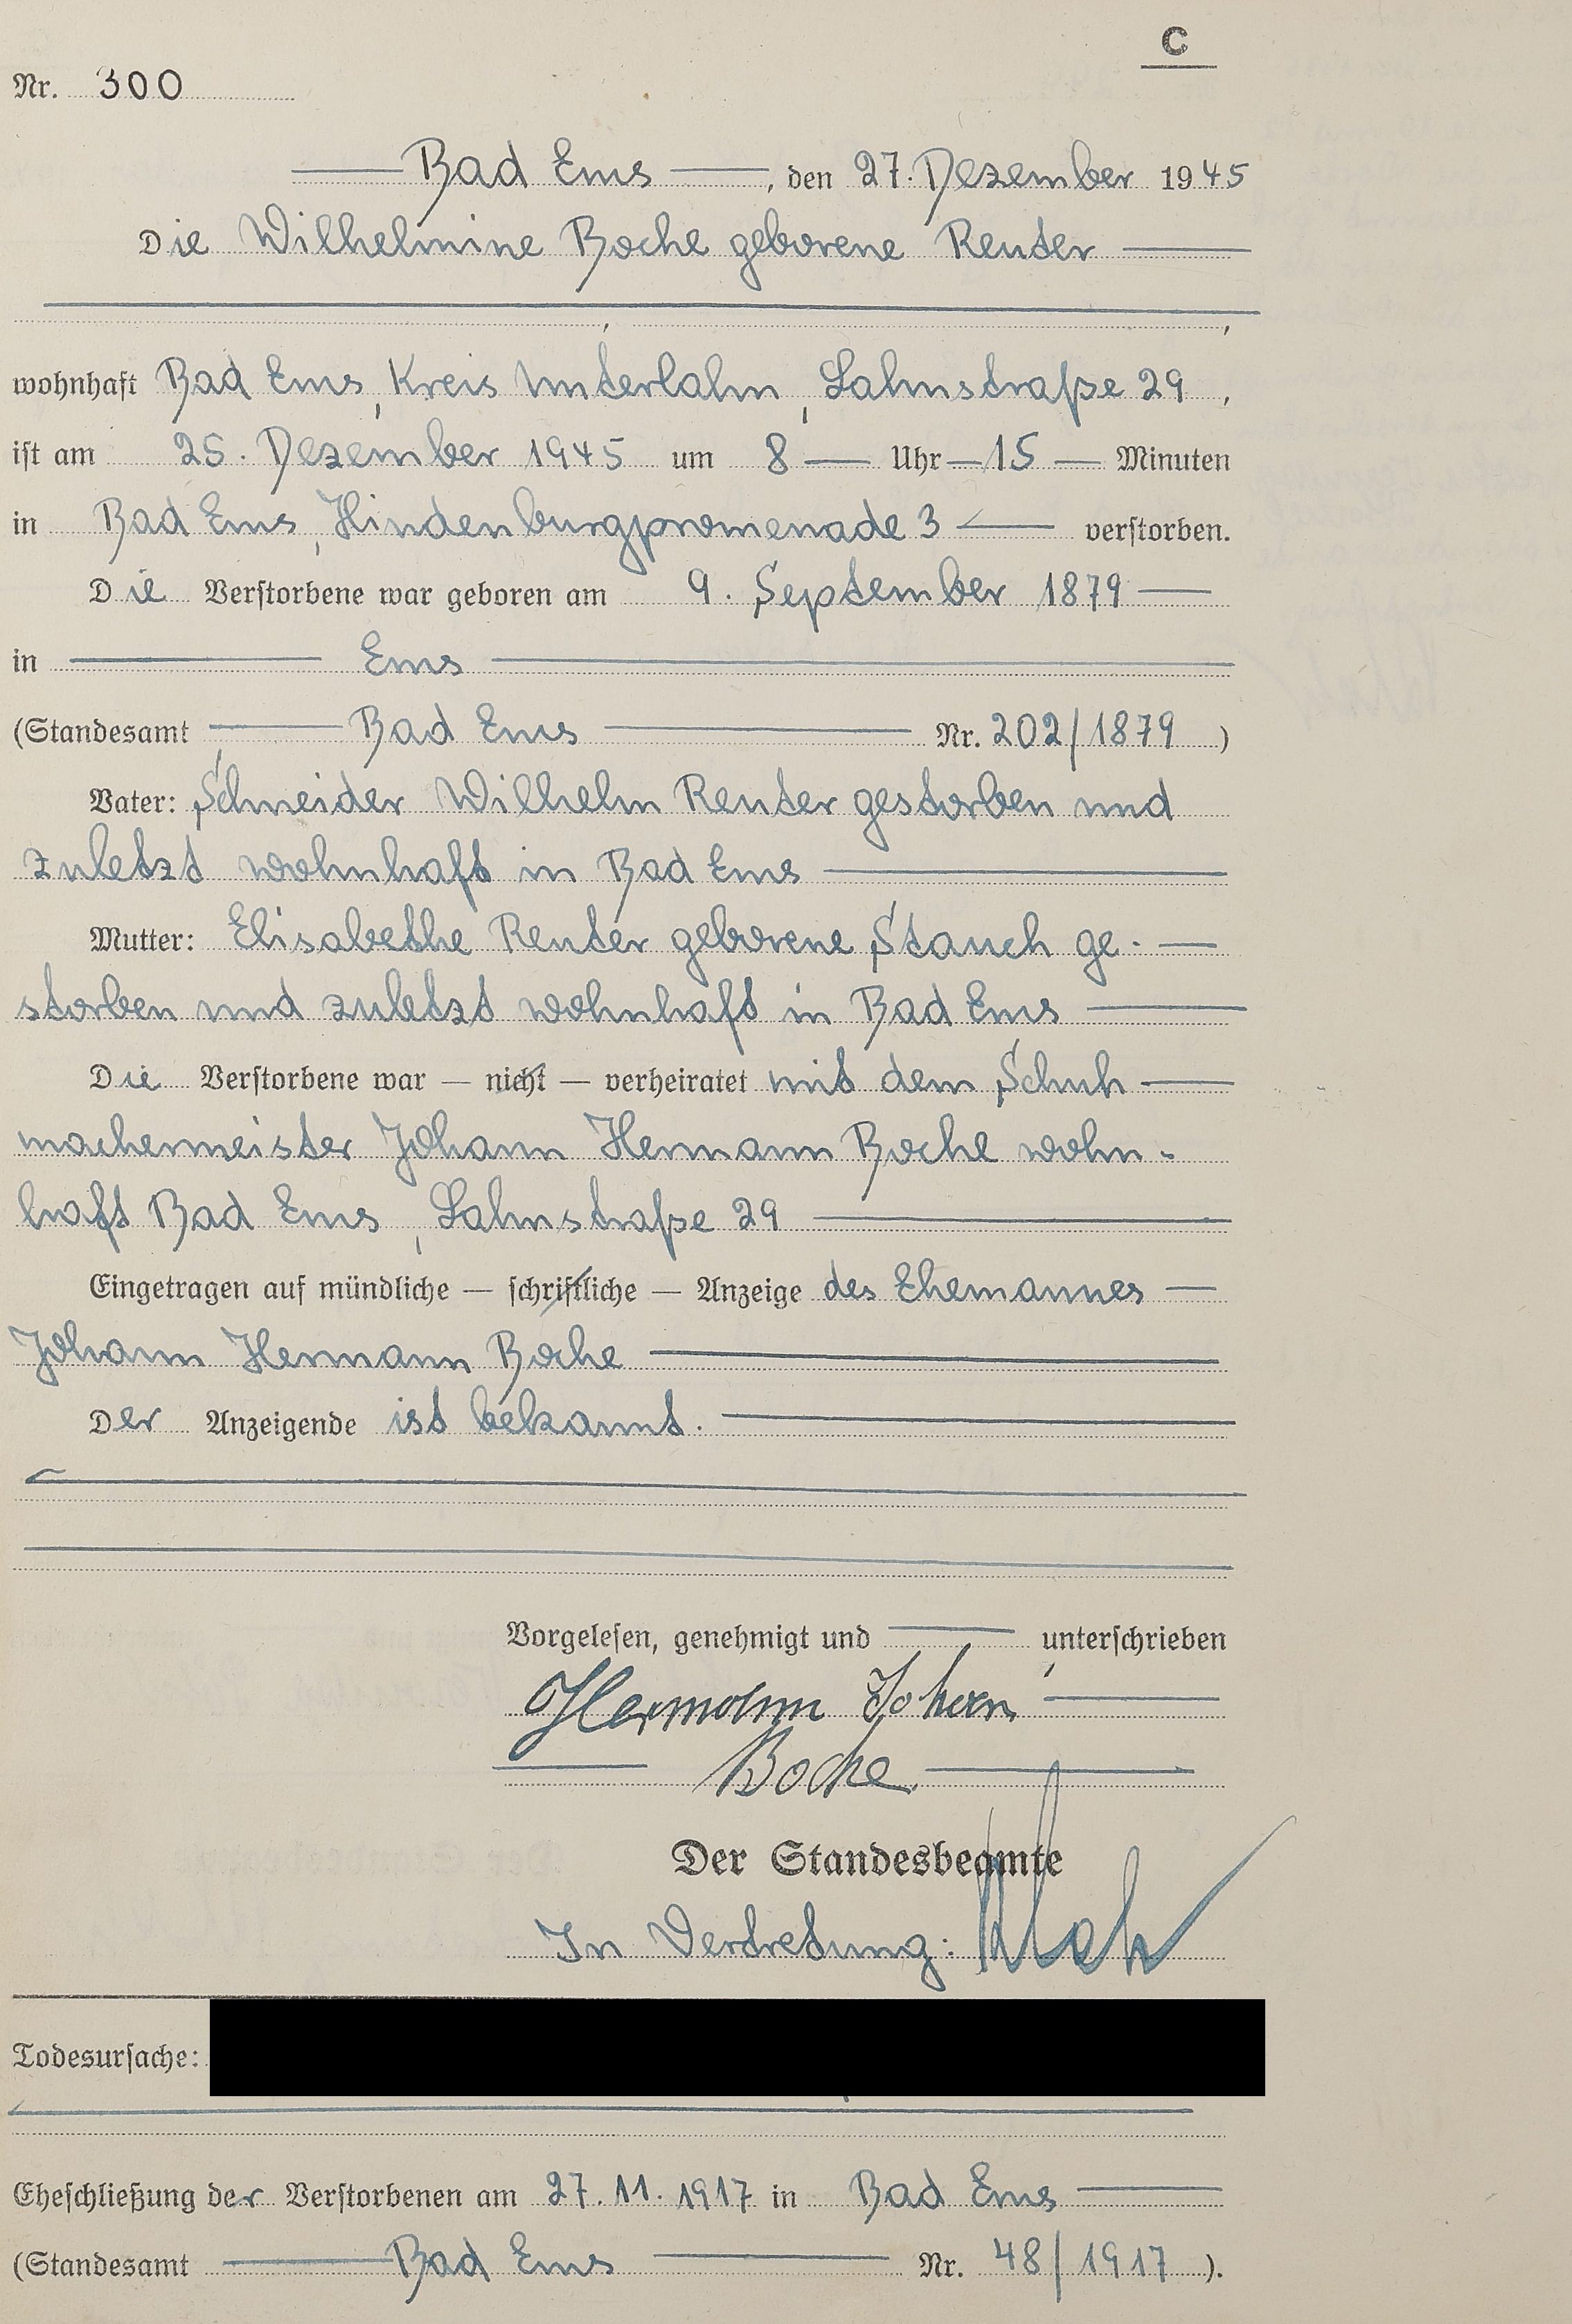 C
Nr. 300
Bad Ems, den 27. Dezember 1945
Die Wilhelmine Boche geborene Reuter
wohnhaft Bad Ems, Kreis Unterlahn, Lahnstraße 29,
ist am 25. Dezember 1945 um 8 Uhr 15 Minuten
in Bad Ems, Hindenburgpromenade 3 verstorben.
Die Verstorbene war geboren am 9. September 1879
in Ems
(Standesamt Bad Ems Nr. 202/1879)
Vater: Schneider Wilhelm Reuter gestorben und
zuletzt wohnhaft in Bad Ems
Mutter: Elisabethe Reuter geborene Stauch ge-
storben und zuletzt wohnhaft in Bad Ems
Die Verstorbene war — nicht — verheiratet mit dem Schuh
machermeister Johann Hermann Boche wohn-
haft Bad Ems, Lahnstraße 29
Eingetragen auf mündliche — schriftliche — Anzeige des Ehemannes
Johann Hermann Boche
Der Anzeigende ist bekannt.
Vorgelesen, genehmigt und unterschrieben
Hermann Johann
Boche
Der Standesbeamte
In Vertretung:
Todesursache:
Eheschließung der Verstorbenen am 27.11.1917 in Bad Ems
(Standesamt Bad Ems Nr. 48/1917).